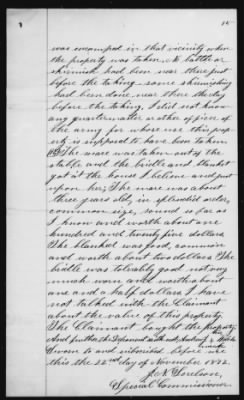 was encamped in that vicinity when
the property was taken. No battle or
skirmish had been near there just
before the taking some skirmishing
had been done near there the day
before the taking. I did not know
any quartermaster or other officer of
the army for whose use this prop-
erty is supposed to have been taken
The mare was taken out of the
stable and the bridle and blanket
got at the house I believe and put
upon her; The mare was about
three years old, in splendid order,
common size, sound so far as
I know and worth about one
hundred and twenty five dollars
The blanket was good, common
and worth about two dollars The
bridle was tolerably good not very
much worn and worth about
one and a half dollars I have
not talked with the Claimant
about the value of this property.
The Claimant bought the property
And further this Deponent saith not.
Sworn to and subscribed before me
this the 22nd day of November 1872
Special Commissioner